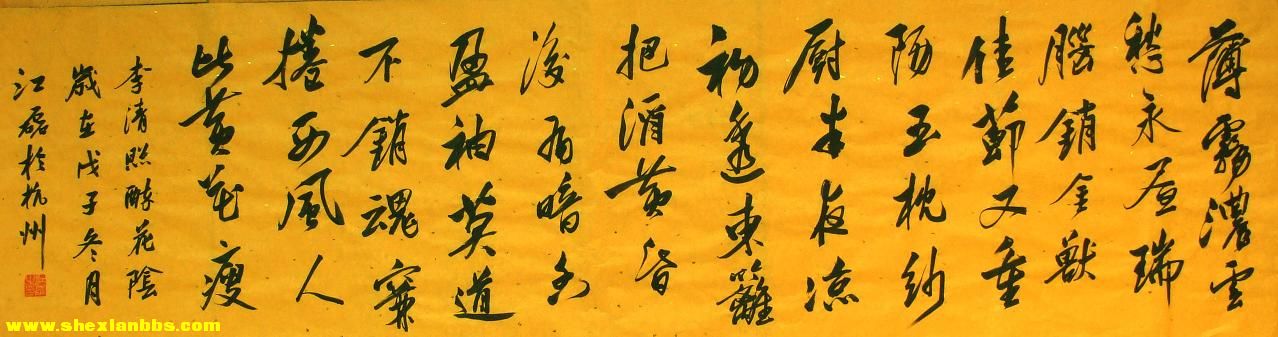 薄霧濃雲
愁永晝瑞
腦銷金獸
佳節又重
陽玉枕紗
厨半夜凉
初透東籬
把酒黄昏
後有暗香
盈袖莫道
不銷魂帘
捲西風人
比黄花瘦
李清照醉花陰
歲在戊子冬月
江磊於杭州
www.shexlanbbs.com